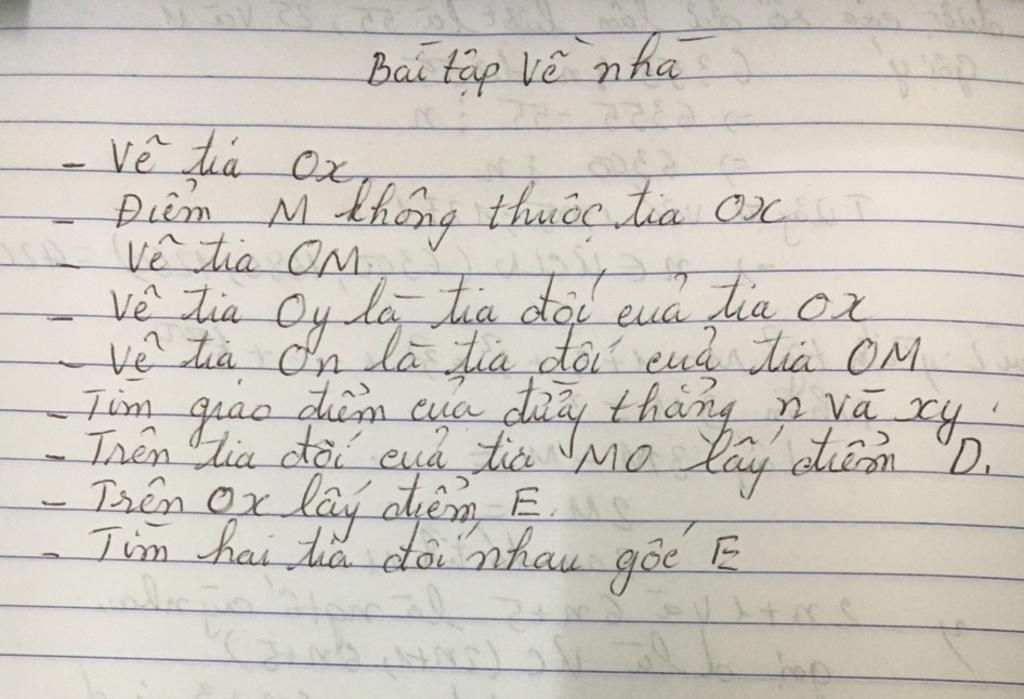 Bài tập về nhà
- Vẽ tia Ox.
- Điểm M không thuộc tia Ox
- Vẽ tia OM.
- Vẽ tia Oy là tia đối của tia Ox
- Vẽ tia On là tia đối của tia OM
- Tìm giao điểm của đường thẳng n và xy.
- Trên tia đối của tia MO lấy điểm D.
- Trên Ox lấy điểm E.
- Tìm hai tia đối nhau gốc E